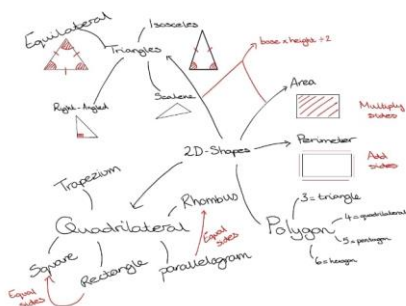 Equilateral
Isosceles
Triangles
base x height ÷ 2
Right-Angled
Scalene
Area
Multiply
sides
2D-Shapes
Perimeter
Add
sides
Trapezium
Rhombus
Quadrilateral
Equal
sides
Polygon
3 = triangle
4 = quadrilateral
5 = pentagon
6 = hexagon
Square
Rectangle
parallelogram
Equal
sides